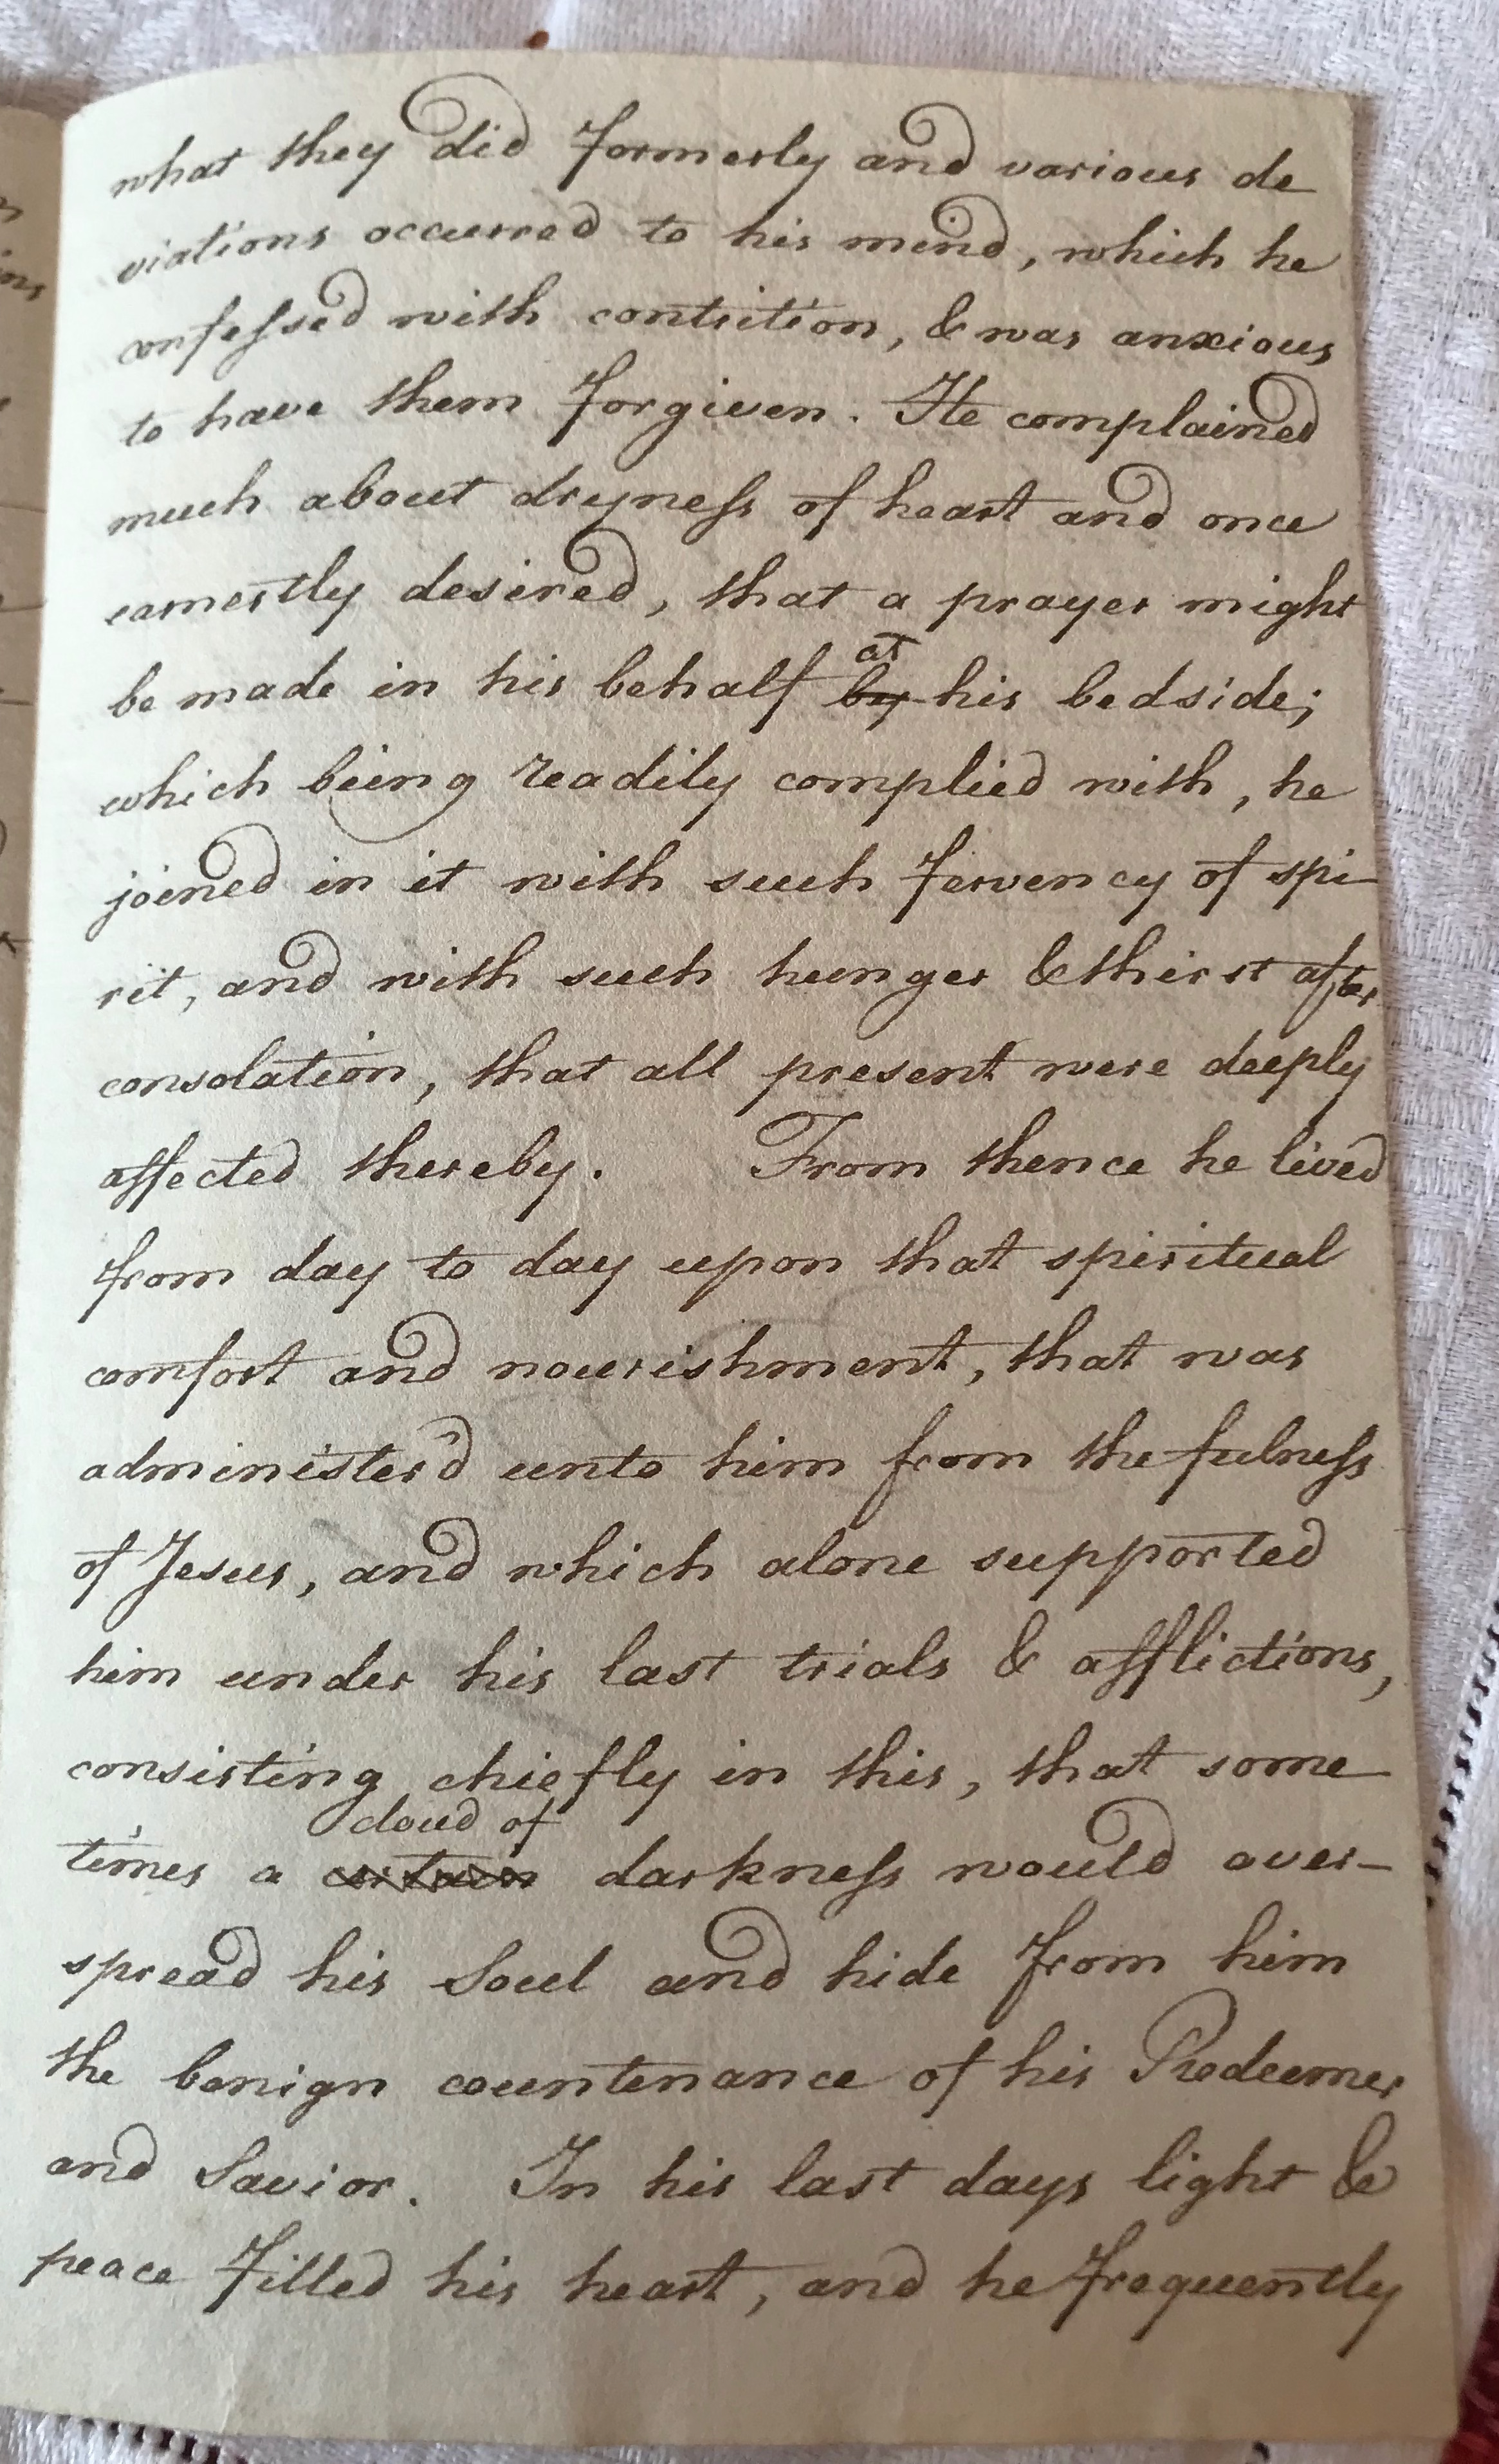 what they did formerly and various de
viations occurred to his mind, which he
confessed with contrition, & was anxious
to have them forgiven. He complained
much about dryness of heart and once
earnestly desired, that a prayer might
at
be made in his behalf by his bedside;
which being readily complied with, he
joined in it with such fervency of spi
rit, and with such hunger & thirst after
consolation, that all present were deeply
affected thereby. From thence he lived
from day to day upon that spiritual
comfort and nourishment, that was
administer'd unto him from the fulness
of Jesus, and which alone supported
him under his last trials & afflictions,
consisting chiefly in this, that some
cloud of
times a certain darkness would over-
spread his Soul and hide from him
the benign countenance of his Redeemer
and Savior. In his last days light &
peace filled his heart, and he frequently